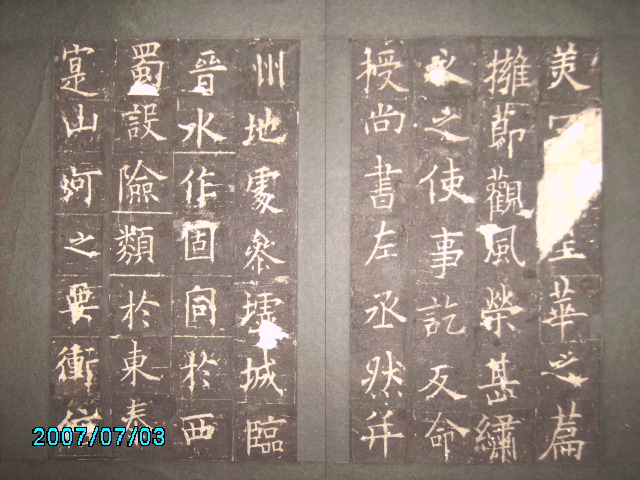 美華之篇
擁節觀風榮甚繡
衣之使事訖反命
授尚書左丞然并
州地處參墟城臨
晉水作固同於西
蜀設險類於東秦
寔山河之要衝
2007/07/03